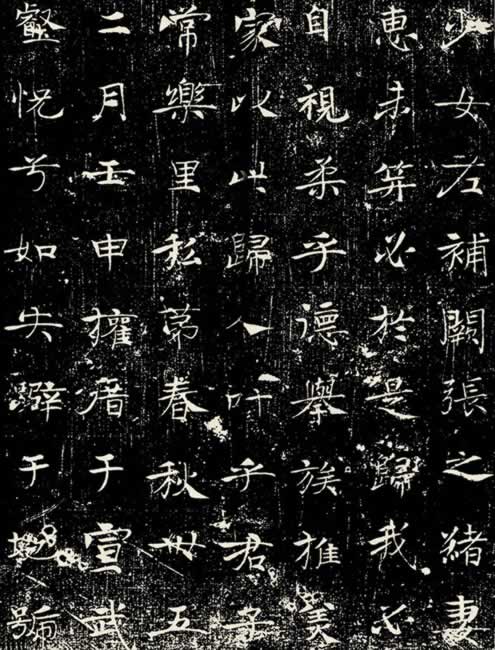 少女右補闕張之緒妻
惠未笄必於是歸我必
自視柔乎德舉族推美
家以此歸人吁乎君子
常樂里私第春秋卌五
二月壬申權厝于宣武
壑怳兮如失躃于地號